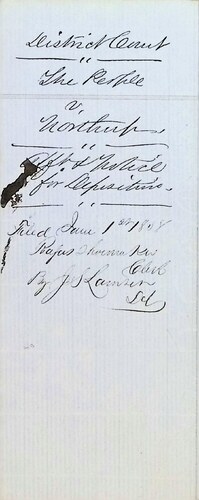 District Court
"
The People
v.
Northrup
"
Aft & Notice
for Deposition.
"
Filed June 1st 18
Rufus Shoemaker
Clerk
By J S Lamson
Dd